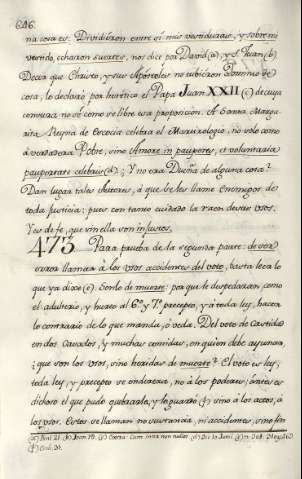 646.
na cora es. Dividieron entre sí mis vestiduras, y sobre mi
vestido, echaron suertes, nos dice por David (a), y S. Juan (b)
Decir que Christo, y sus Apóstoles no tubieron Dominio de
cosa, lo declaró por heretico el Papa Juan XXII (c) de cuya
censura no sé como se libre esa proposición. A Santa Marga-
rita Reyna de Escocia celebra el Martirologio, no solo como
á verdadera Pobre, sino Amore in pauperes, et voluntaria
paupertate celebrir (d). ¿Y no era Dueña de alguna cosa?
Dan lugar tales Autores, á que se les llame Enemigos de
toda Justicia; pues con tanto cuidado la usos.
Yo de fe, que sin ella son injustos.
473 Para prueba de la segunda parte: de ser
error llamar á los usos accidentes del voto, basta lea lo
que ya dixe (e). Sonlo de muerte: por que le despedazan, como
el adulterio, y hurto al 6º y 7º precepto, y á toda ley, hacer
lo contrario de lo que manda, ó veda. Del voto de Castidad
en dos Casados, y muchas comidas, en quien debe ayunar,
¿que son los usos, sino heridas de muerte? El voto es ley,
toda ley, y precepto se ordena, no á los poderes; antes es
dichoso el que pudo quebrarla, y la guardó (f) sino á los actos, á
los usos. Estos se llaman no substancia, ni accidentes, sino fin
(a) Psal. 21. (b) Joan. 19. (c) Extra. Cum inter non nullos (d)
(f) Ecli. 31.